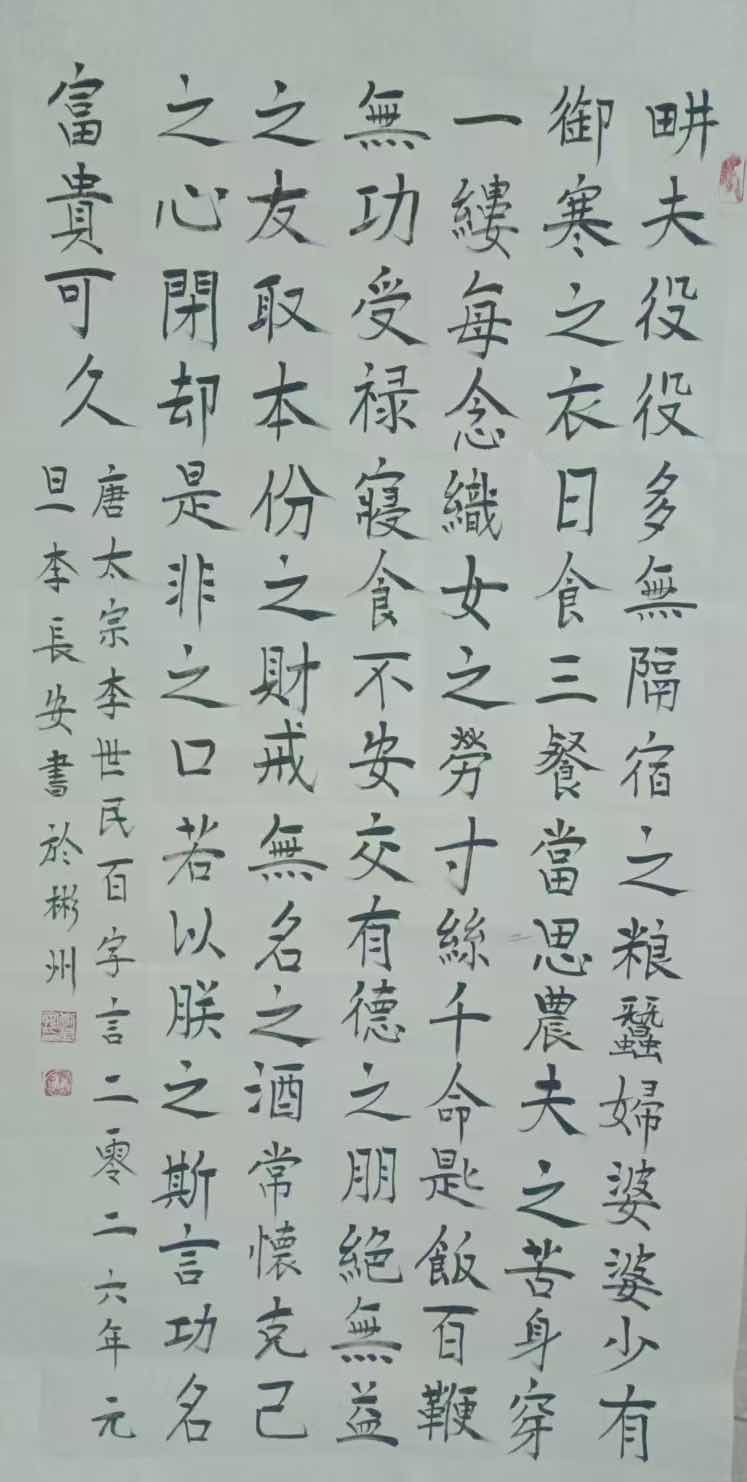 畊夫役役多無隔宿之粮蠶婦婆婆少有
御寒之衣日食三餐當思農夫之苦身穿
一縷每念織女之勞寸絲千命匙飯百鞭
無功受禄寢食不安交有德之朋絕無益
之友取本份之財戒無名之酒常懷克己
之心閉却是非之口若以朕之斯言功名
富貴可久
唐太宗李世民百字言二零二六年元
旦李長安書於彬州